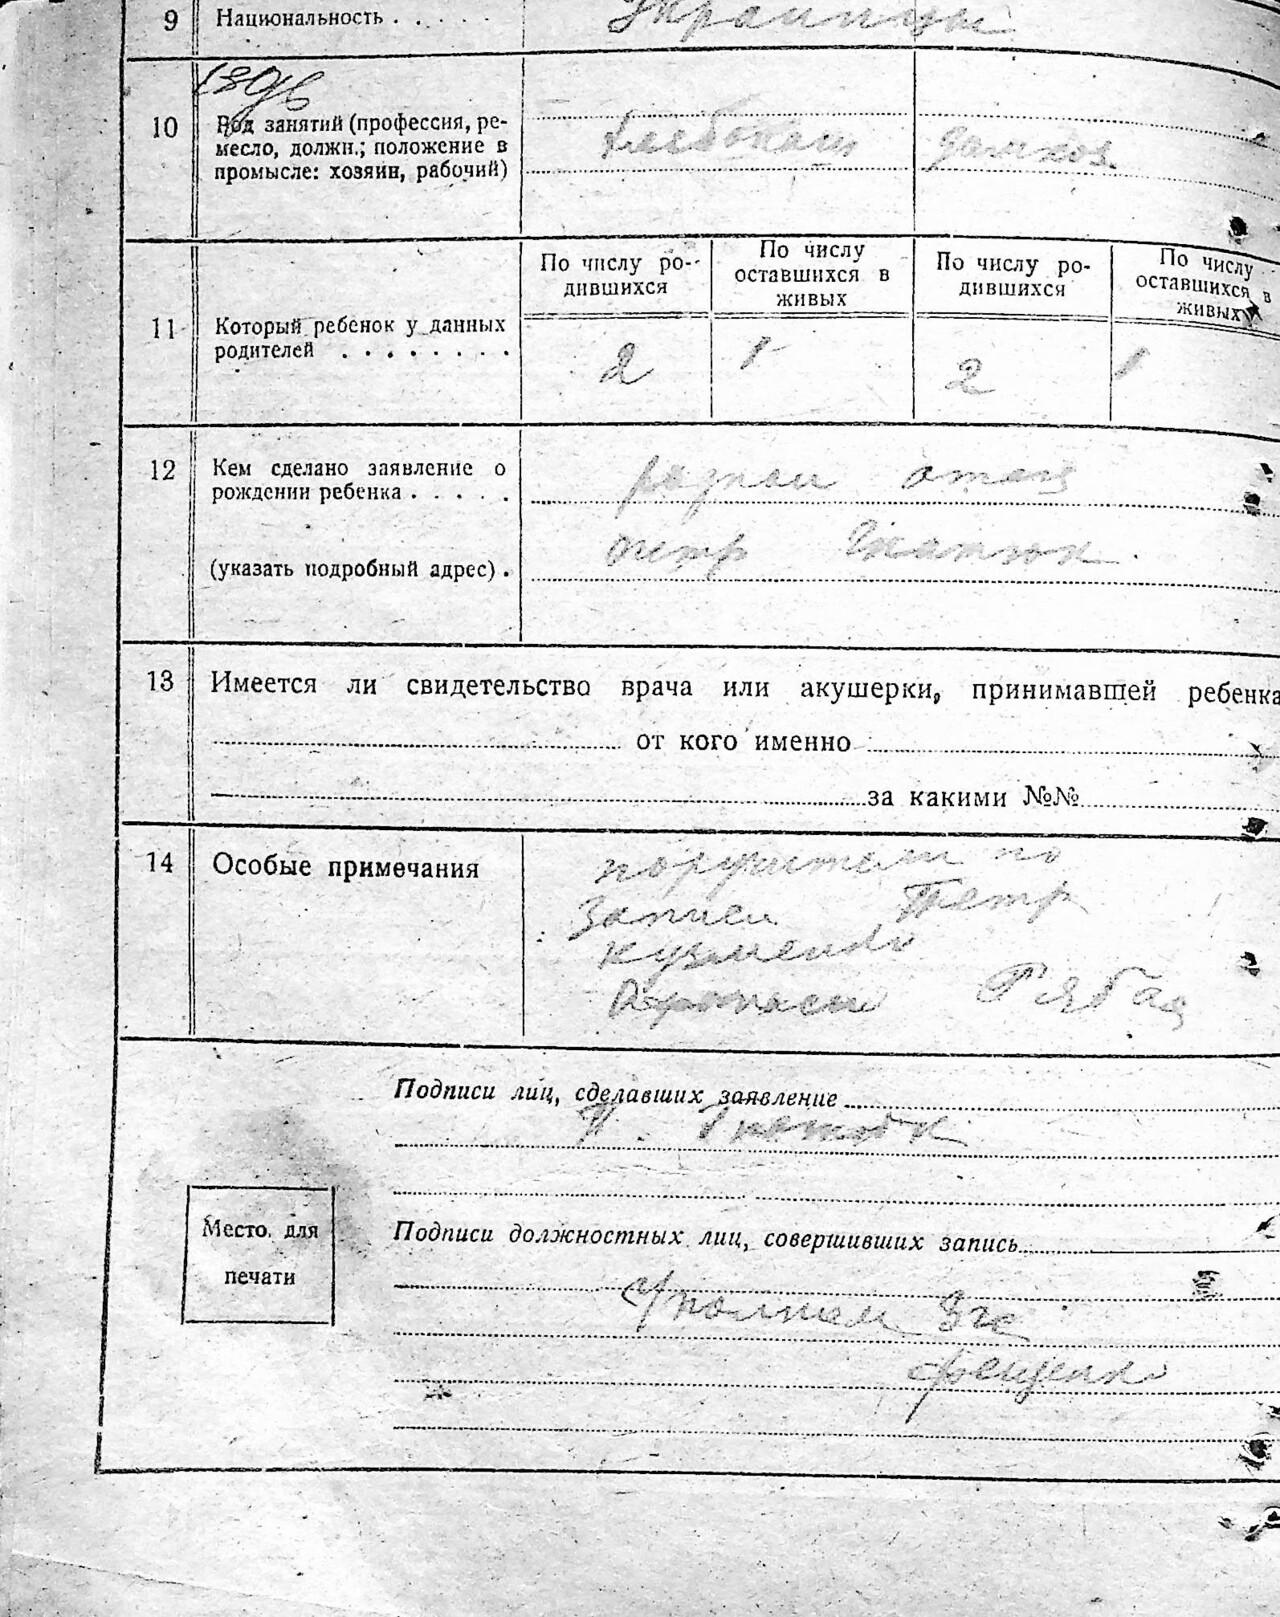 9 Национальность . . . . . . Украинцы
10 Род занятий (профессия, ре-
месло, должн.; положение в
промысле: хозяин, рабочий)
хлебопаш домхоз
11 Который ребенок у данных
родителей . . . . . . . .
По числу ро-
дившихся
По числу
оставшихся в
живых
По числу ро-
дившихся
По числу
оставшихся в
живых
2 1 2 1
12 Кем сделано заявление о
рождении ребенка . . . . .
отец
(указать подробный адрес) .
петр Гнатюк
13 Имеется ли свидетельство врача или акушерки, принимавшей ребенка
от кого именно
за какими №№
14 Особые примечания
поручители по
записи Петр
кузменко
Афонасы Рябац
Подписи лиц, сделавших заявление
П. Гнатюк
Место для
печати
Подписи должностных лиц, совершивших запись
Уполном Загс
Фещенко